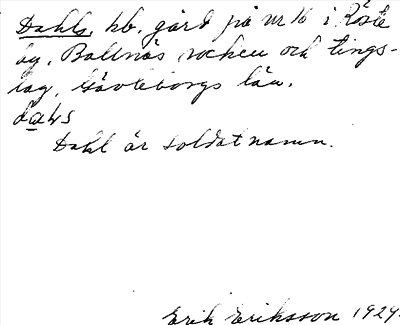 Dahls, hb. gård på nr 16 i Röste
by, Bollnäs socken och tings-
lag, Gävleborgs län.
dahs
Dahl är soldatnamn.
Erik Eriksson 1929.